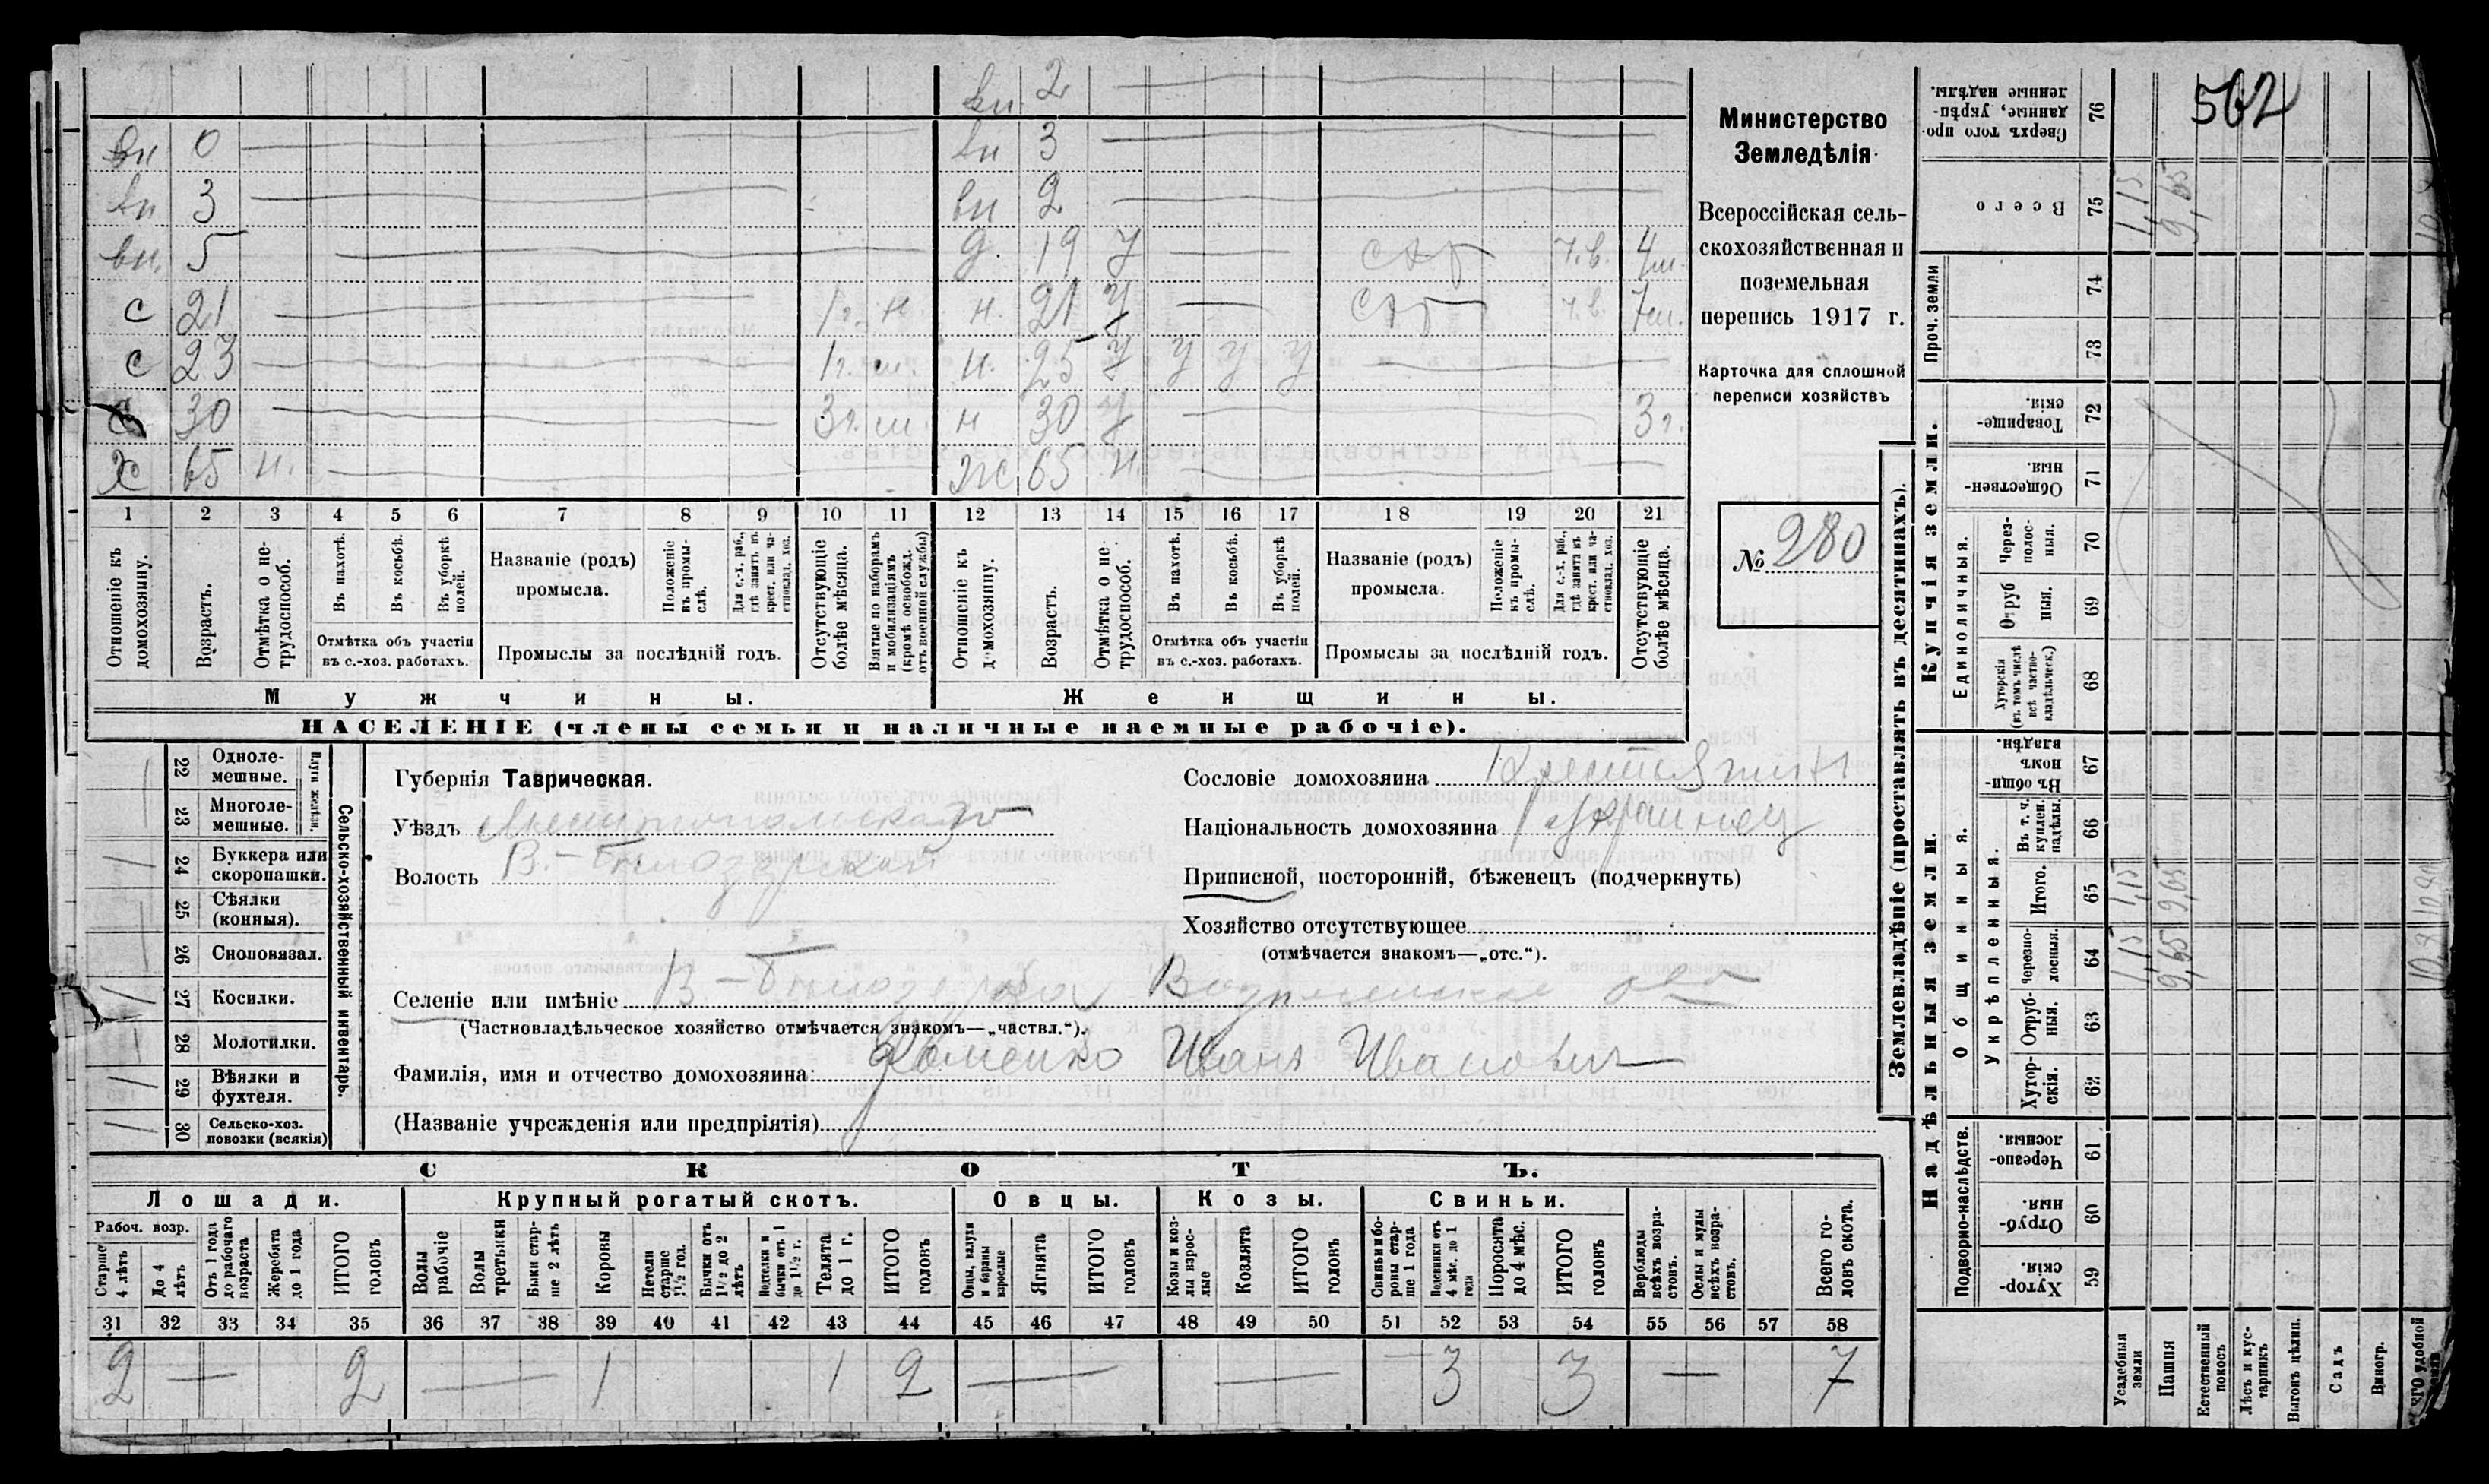 вн 2
вн 0 вн 3
вн 3 вн 2
вн. 5 д. 19 У 7. в. 4 м.
с 21 1 г. н. н. 21 У 7. в. 7 м.
с 23 1 г. м. н. 25 У У У У
с 30 3 г. м. н 30 У 3 г.
х 65 н. ж 65 н.
1 2 3 4 5 6 7 8 9 10 11 12 13 14 15 16 17 18 19 20 21
Отношеніе къ домохозяину.
Возрастъ.
Отмѣтка о не-
трудоспособ.
Въ пахотѣ.
Въ косьбѣ.
Въ уборкѣ
полей.
Отмѣтка объ участіи
въ с.-хоз. работахъ.
Названіе (родъ)
промысла.
Положеніе
въ промы-
слѣ.
Для с.-х. раб.,
гдѣ занятъ въ
крест. или ча-
стновлад. хоз.
Промыслы за послѣдній годъ.
Отсутствующіе
болѣе мѣсяца.
Взятые по наборамъ
и мобилизаціямъ
(кромѣ освобожд.
отъ военной службы)
Отношеніе къ
домохозяину.
Возрастъ.
Отмѣтка о не-
трудоспособ.
Въ пахотѣ.
Въ косьбѣ.
Въ уборкѣ
полей.
Отмѣтка объ участіи
въ с.-хоз. работахъ.
Названіе (родъ)
промысла.
Положеніе
къ промы-
слѣ.
Для с.-х. раб.,
гдѣ занята въ
крест. или ча-
стновлад. хоз.
Промыслы за послѣдній годъ.
Отсутствующіе
болѣе мѣсяца.
Мужчины.
Женщины.
НАСЕЛЕНІЕ (члены семьи и наличные наемные рабочіе).
Министерство
Земледѣлія
Всероссійская сель-
скохозяйственная и
поземельная
перепись 1917 г.
Карточка для сплошной
переписи хозяйствъ
№ 280
22 Одноле-
мешные.
23 Многоле-
мешные.
Плуги желѣзн.
24 Буккера или
скоропашки.
25 Сѣялки
(конныя).
26 Сноповязал.
27 Косилки.
28 Молотилки.
29 Вѣялки и
фухтеля.
30 Сельско-хоз.
повозки (всякія)
Сельско-хозяйственный инвентарь.
Губернія Таврическая.
Уѣздъ Мелитопольскаго
Волость В.-Бѣлозерской
Сословіе домохозяина Крестьянинъ
Національность домохозяина Украинец
Приписной, посторонній, бѣженецъ (подчеркнуть)
Хозяйство отсутствующее
(отмѣчается знакомъ—„отс.“).
Селеніе или имѣніе В-Бѣлозерка
(Частновладѣльческое хозяйство отмѣчается знакомъ—„частвл.“).
Фамилія, имя и отчество домохозяина: Фоменко Иванъ Иванович
(Названіе учрежденія или предпріятія)
СКОТЪ.
Лошади. Крупный рогатый скотъ. Овцы. Козы. Свиньи.
Рабоч. возр.
Старше
4 лѣтъ
До 4
лѣтъ
Отъ 1 года
до рабочаго
возраста
Жеребята
до 1 года
ИТОГО
головъ
Волы
рабочіе
Волы
третьяки
Быки стар-
ше 2 лѣтъ
Коровы
Нетели
старше
1½ год.
Бычки отъ
1½ до 2
лѣтъ
Подтелки и
бычки отъ 1
до 1½ г.
Телята
до 1 г.
ИТОГО
головъ
Овцы, валухи
и бараны
взрослые
Ягнята
ИТОГО
головъ
Козы и коз-
лы взрос-
лые
Козлята
ИТОГО
головъ
Свиньи и бо-
ровы стар-
ше 1 года
Подсвинки отъ
4 мѣс. до 1
года
Поросята
до 4 мѣс.
ИТОГО
головъ
Верблюды
всѣхъ возра-
стовъ.
Ослы и мулы
всѣхъ возра-
стовъ.
Всего го-
ловъ скота.
31 32 33 34 35 36 37 38 39 40 41 42 43 44 45 46 47 48 49 50 51 52 53 54 55 56 57 58
2 — 2 — 1 1 2 — — 3 3 — 7
Землевладѣніе (проставлять въ десятинахъ).
Надѣльныя земли.
Купчія земли.
Проч. земли
Подворно-наслѣдств.
Общинныя.
Укрѣпленныя.
Единоличныя.
502
76 Сверхъ того про-
данные, укрѣп-
ленные надѣлы.
75 Всего 1,15 9,65
74
73
72 Товарище-
скія.
71 Обществен-
ныя.
70 Через-
полос-
ныя.
69 Отруб
ныя.
68 Хуторскія
(въ томъ числѣ
всѣ частно-
владѣльческ.)
67 Въ общин-
номъ
владѣн.
66 Въ т. ч.
куплен.
надѣлы.
65 Итого. 1,15 9,65
64 Черезпо-
лосныя. 1,15 9,65
63 Отруб-
ныя.
62 Хутор-
скія.
61 Черезпо-
лосныя.
60 Отруб-
ныя.
59 Хутор-
скія.
Усадебныя
земли
Пашня
Естественный
покосъ
Лѣсъ и кус-
тарникъ
Выгонъ цѣлин.
Садъ
Виногр.